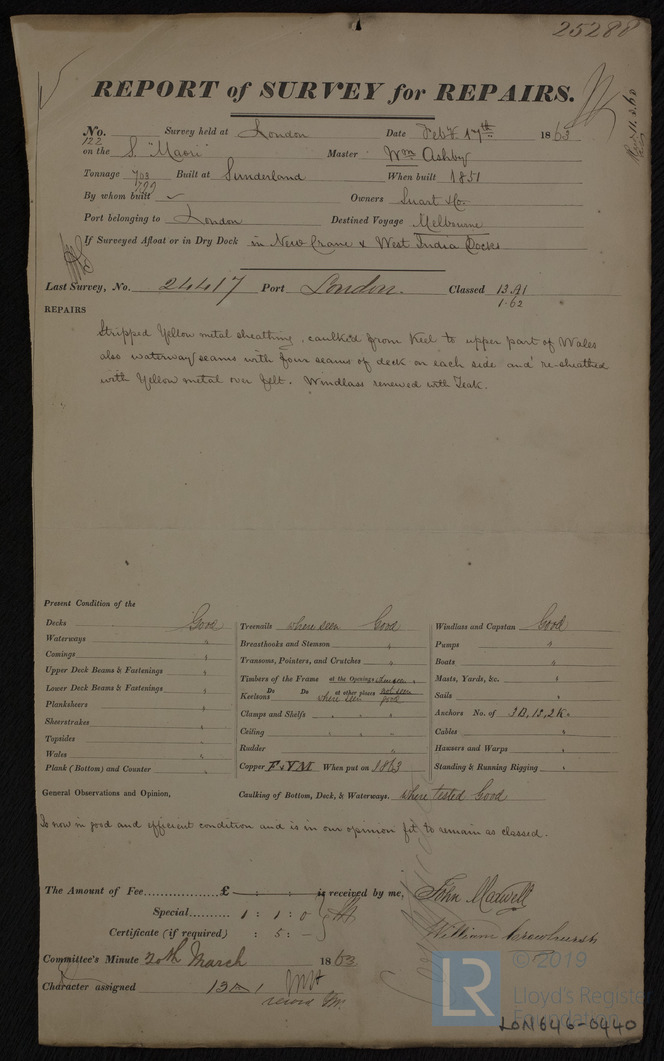 25288
REPORT of SURVEY for REPAIRS.
No. 122 Survey held at London Date Feby 17th 1863
on the S. "Maori" Master Wm Ashby
Tonnage 703 Built at Sunderland When built 1851
By whom built Owners
Port belonging to London Destined Voyage Melbourne
If Surveyed Afloat or in Dry Dock in New Crane & West India Docks
Last Survey, No. 24417 Port London. Classed 13 A1
1.62
REPAIRS
Stripped Yellow metal sheathing, caulked from Keel to upper part of Wales
also waterway seams with four seams of deck on each side and re-sheathed
with Yellow metal over felt. Windlass renewed with Teak.
Present Condition of the
Decks Good
Waterways "
Comings "
Upper Deck Beams & Fastenings "
Lower Deck Beams & Fastenings "
Planksheers "
Sheerstrakes "
Topsides "
Wales "
Plank (Bottom) and Counter "
Treenails where seen Good
Breasthooks and Stemson "
Transoms, Pointers, and Crutches "
Timbers of the Frame at the Openings
Do Do at other places not seen
Keelsons where seen good
Clamps and Shelfs "
Ceiling "
Rudder "
Copper F & YM When put on 1863
Windlass and Capstan Good
Pumps "
Boats "
Masts, Yards, &c. "
Sails "
Anchors No. of 3B, 1S, 2K.
Cables "
Hawsers and Warps "
Standing & Running Rigging "
General Observations and Opinion, Caulking of Bottom, Deck, & Waterways. where tested Good
Is now in good and efficient condition and is in our opinion fit to remain as classed.
The Amount of Fee................£ — : : is received by me, John Maxwell
Special.......... 1 : 1 : 0
William Crowhurst
Certificate (if required) : 5 : —
Committee's Minute 20th March 1863
Character assigned 13 A 1
LR © 2019
Lloyd's Register
Foundation
LON646-0440